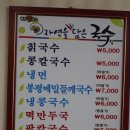 자연을 담은 국수
칡국수 ₩5,000
콩칼국수 ₩6,000
냉면 ₩6,000
봉평메밀들깨국수 ₩7,000
냉콩국수 ₩6,000
떡만두국 ₩6,000